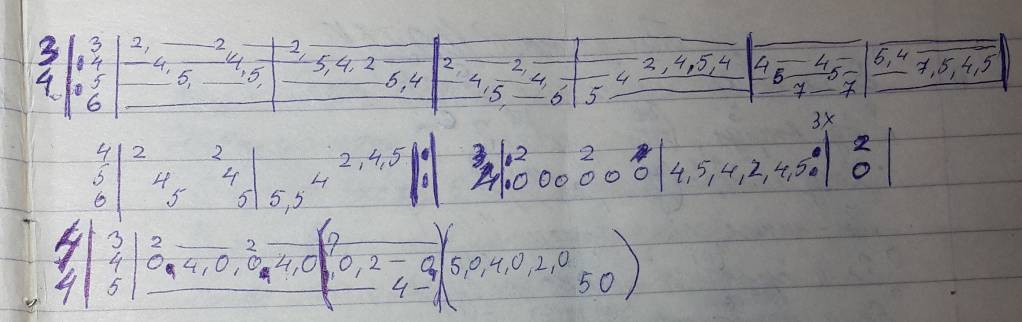 3 3 2, 2 2, 2, 2, 5,4
4 4 4, 4, 5,4,2 4, 4, 4 2,4,5,4 4 4 7,5,4,5
5 5, 5, 5,4 5, 5 5 5 5
6 7 7
3x
4 2 2 2,4,5 3 2 2 2
5 4 4 4 4 0 0 0 0 0 0 4,5,4,2,4,5 0
6 5 5 5,5
4 3 2 2 2
4 4 0,4,0,0,4,0 0,2 0 5,0,4,0,2,0
5 4 5 0